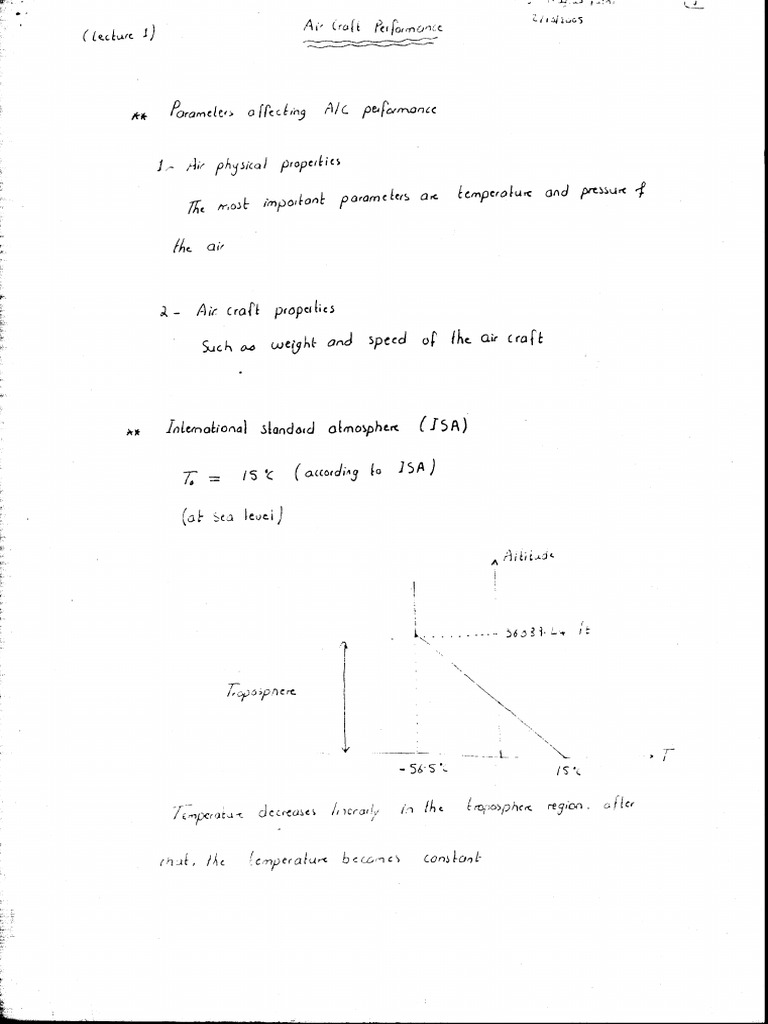 (Lecture 1)
Air Craft Performance
2/10/2005
** Parameters affecting A/C performance
1- Air physical properties
The most important parameters are temperature and pressure of
the air
2- Air craft properties
Such as weight and speed of the air craft
** International standard atmosphere (ISA)
T₀ = 15°C (according to ISA)
(at sea level)
Altitude
ft
Troposphere
-56.5°C
15°C
T
Temperature decreases linearly in the troposphere region. after
that, the temperature becomes constant